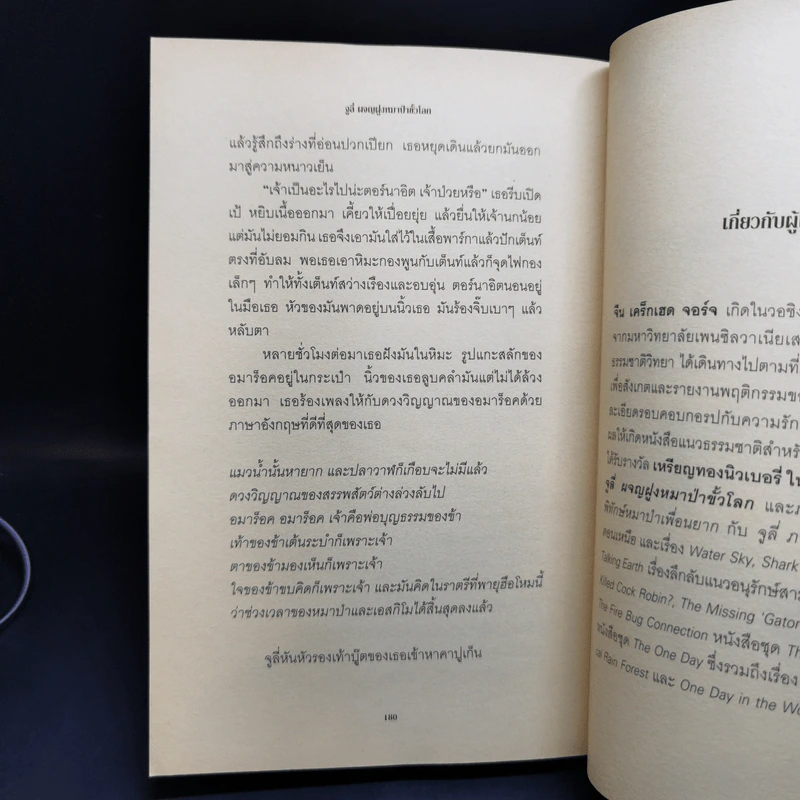 จูลี่ ผจญฝูงหมาป่าขั้วโลก
แล้วรู้สึกถึงร่างที่อ่อนปวกเปียก เธอหยุดเดินแล้วยกมันออก
มาสู่ความหนาวเย็น
“เจ้าเป็นอะไรไปน่ะตอร์นาอิต เจ้าป่วยหรือ” เธอรีบเปิด
เป้ หยิบเนื้อออกมา เคี้ยวให้เปื่อยยุ่ย แล้วยื่นให้เจ้านกน้อย
แต่มันไม่ยอมกิน เธอจึงเอามันใส่ไว้ในเสื้อพาร์กาแล้วปักเต็นท์
ตรงที่อับลม พอเธอเอาหิมะกองพูนกับเต็นท์แล้วก็จุดไฟกอง
เล็กๆ ทำให้ทั้งเต็นท์สว่างเรืองและอบอุ่น ตอร์นาอิตนอนอยู่
ในมือเธอ หัวของมันพาดอยู่บนนิ้วเธอ มันร้องจิ๊บเบาๆ แล้ว
หลับตา
หลายชั่วโมงต่อมาเธอฝังมันในหิมะ รูปแกะสลักของ
อมาร็อคอยู่ในกระเป๋า นิ้วของเธอลูบคลำมันแต่ไม่ได้ล้วง
ออกมา เธอร้องเพลงให้กับดวงวิญญาณของอมาร็อคด้วย
ภาษาอังกฤษที่ดีที่สุดของเธอ
แมวน้ำนั้นหายาก และปลาวาฬก็เกือบจะไม่มีแล้ว
ดวงวิญญาณของสรรพสัตว์ต่างล่วงลับไป
อมาร็อค อมาร็อค เจ้าคือพ่อบุญธรรมของข้า
เท้าของข้าเต้นระบำก็เพราะเจ้า
ตาของข้ามองเห็นก็เพราะเจ้า
ใจของข้าขบคิดก็เพราะเจ้า และมันคิดในราตรีที่พายุฮือโหมนี้
ว่าช่วงเวลาของหมาป่าและเอสกิโมได้สิ้นสุดลงแล้ว
จูลี่หันหัวรองเท้าบู๊ตของเธอเข้าหาคาปูเก็น
180
เกี่ยวกับผู้
จีน เคร็กเฮด จอร์จ เกิดในวอชิง
จากมหาวิทยาลัยเพนซิลวาเนียเส
ธรรมชาติวิทยา ได้เดินทางไปตามที่
เพื่อสังเกตและรายงานพฤติกรรมข
ละเอียดรอบคอบกอรปกับความรัก
ผลให้เกิดหนังสือแนวธรรมชาติสำหรั
ได้รับรางวัล เหรียญทองนิวเบอรี่ ใน
จูลี่ ผจญฝูงหมาป่าขั้วโลก และภ
พิทักษ์หมาป่าเพื่อนยาก กับ จูลี่ ภ
ตอนเหนือ และเรื่อง Water Sky, Shark
Talking Earth เรื่องลึกลับแนวอนุรักษ์สา
Killed Cock Robin?, The Missing 'Gator
The Fire Bug Connection หนังสือชุด Th
หนังสือชุด The One Day ซึ่งรวมถึงเรื่อง
cal Rain Forest และ One Day in the Wo